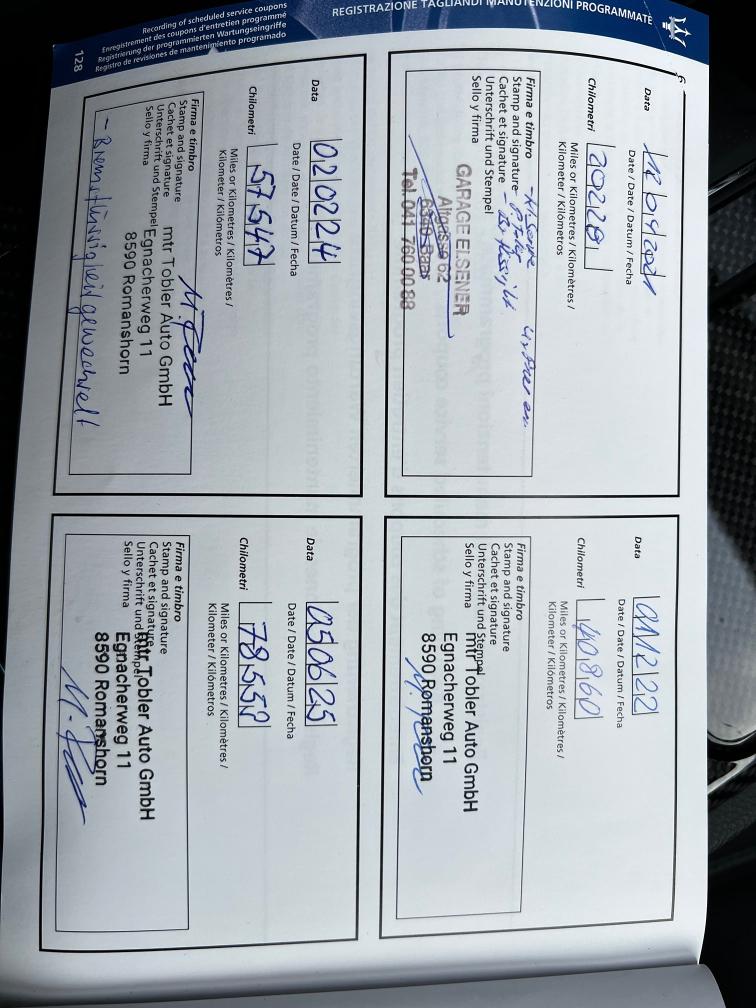 REGISTRAZIONE TAGLIANDI MANUTENZIONI PROGRAMMATE
Recording of scheduled service coupons
Enregistrement des coupons d'entretien programmé
Registrierung der programmierten Wartungseingriffe
Registro de revisiones de mantenimiento programado
128
Data
12 04 2021
Date / Date / Datum / Fecha
Chilometri
20228
Miles or Kilometres / Kilomètres /
Kilometer / Kilómetros
Firma e timbro
Stamp and signature
Cachet et signature
Unterschrift und Stempel
Sello y firma
GARAGE ELSENER
Tel. 041 760 00 88
Data
01 12 22
Date / Date / Datum / Fecha
Chilometri
40860
Miles or Kilometres / Kilomètres /
Kilometer / Kilómetros
Firma e timbro
Stamp and signature
Cachet et signature
Unterschrift und Stempel
Sello y firma
mtr Tobler Auto GmbH
Egnacherweg 11
8590 Romanshorn
Data
02 02 24
Date / Date / Datum / Fecha
Chilometri
57547
Miles or Kilometres / Kilomètres /
Kilometer / Kilómetros
Firma e timbro
Stamp and signature
Cachet et signature
Unterschrift und Stempel
Sello y firma
mtr Tobler Auto GmbH
Egnacherweg 11
8590 Romanshorn
- Bremsflüssigkeit gewechselt
Data
05 06 25
Date / Date / Datum / Fecha
Chilometri
78558
Miles or Kilometres / Kilomètres /
Kilometer / Kilómetros
Firma e timbro
Stamp and signature
Cachet et signature
Unterschrift und Stempel
Sello y firma
mtr Tobler Auto GmbH
Egnacherweg 11
8590 Romanshorn